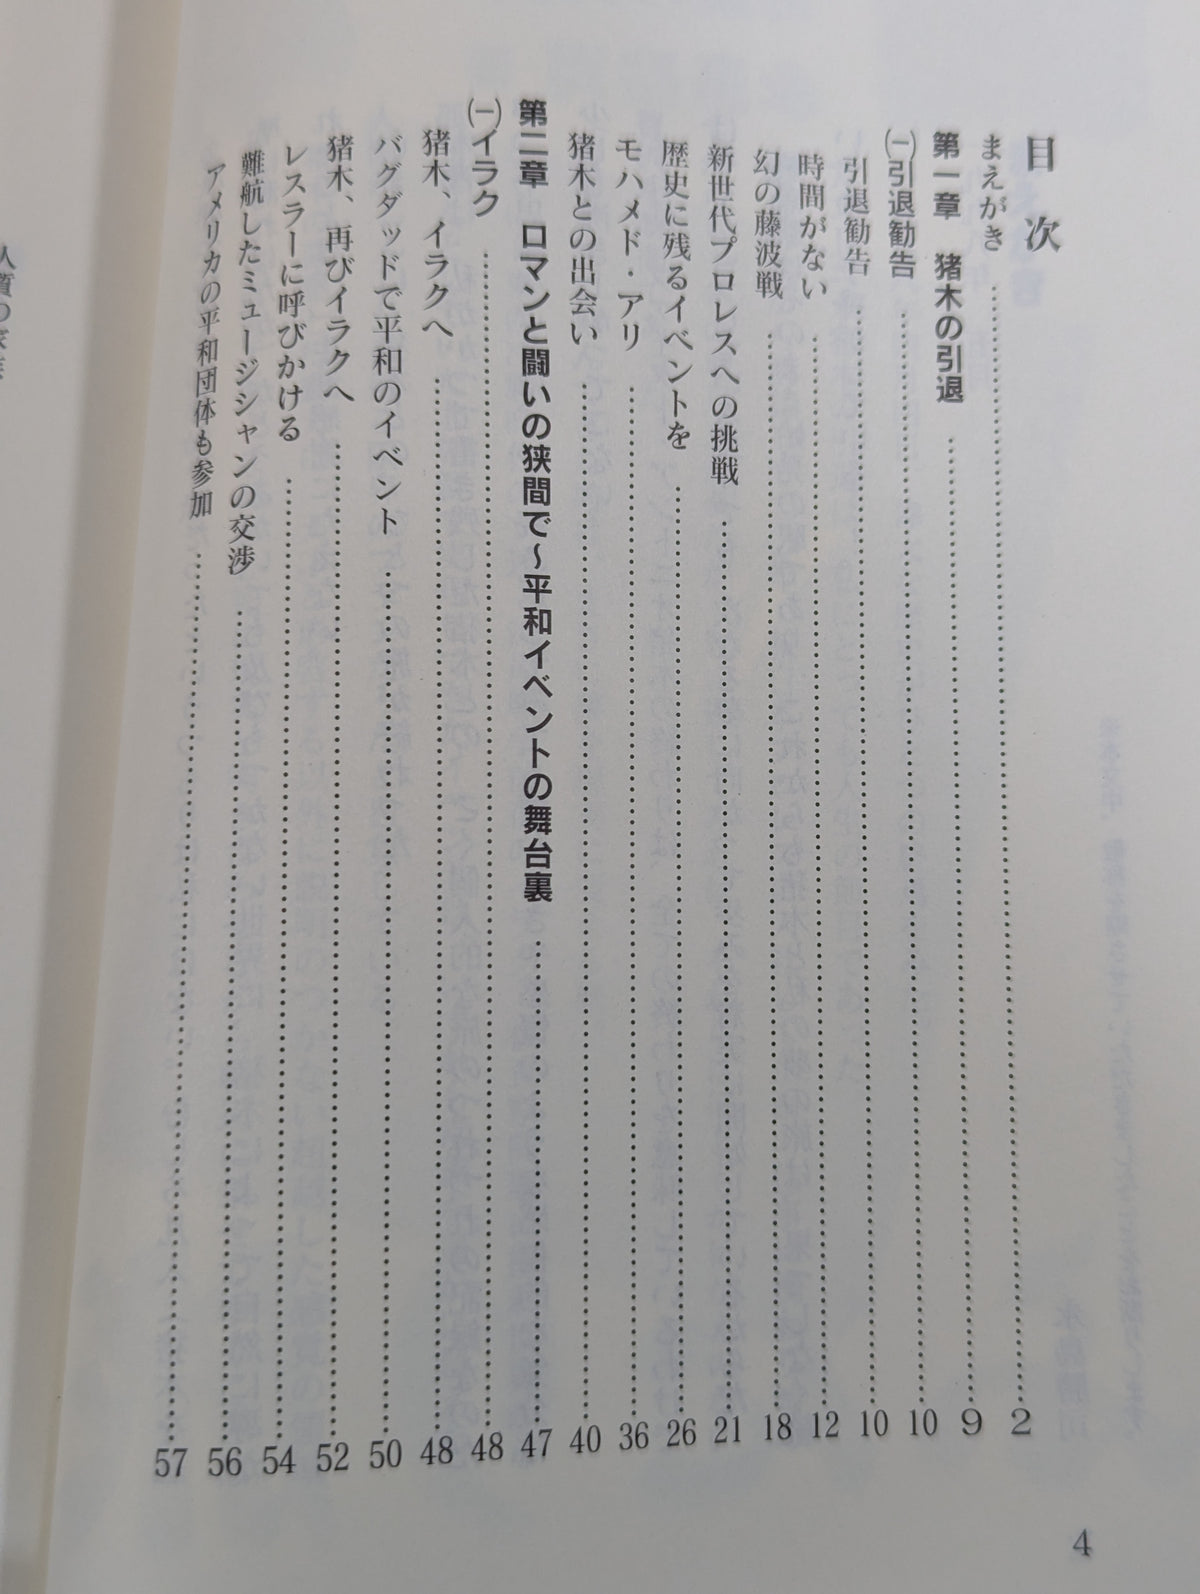 目次
まえがき……2
第一章　猪木の引退……9
㈠引退勧告……10
引退勧告……10
時間がない……12
幻の藤波戦……18
新世代プロレスへの挑戦……21
歴史に残るイベントを……26
モハメド・アリ……36
猪木との出会い……40
第二章　ロマンと闘いの狭間で～平和イベントの舞台裏……47
㈠イラク……48
猪木、イラクへ……48
バグダッドで平和のイベント……50
猪木、再びイラクへ……52
レスラーに呼びかける……54
難航したミュージシャンの交渉……56
アメリカの平和団体も参加……57
4